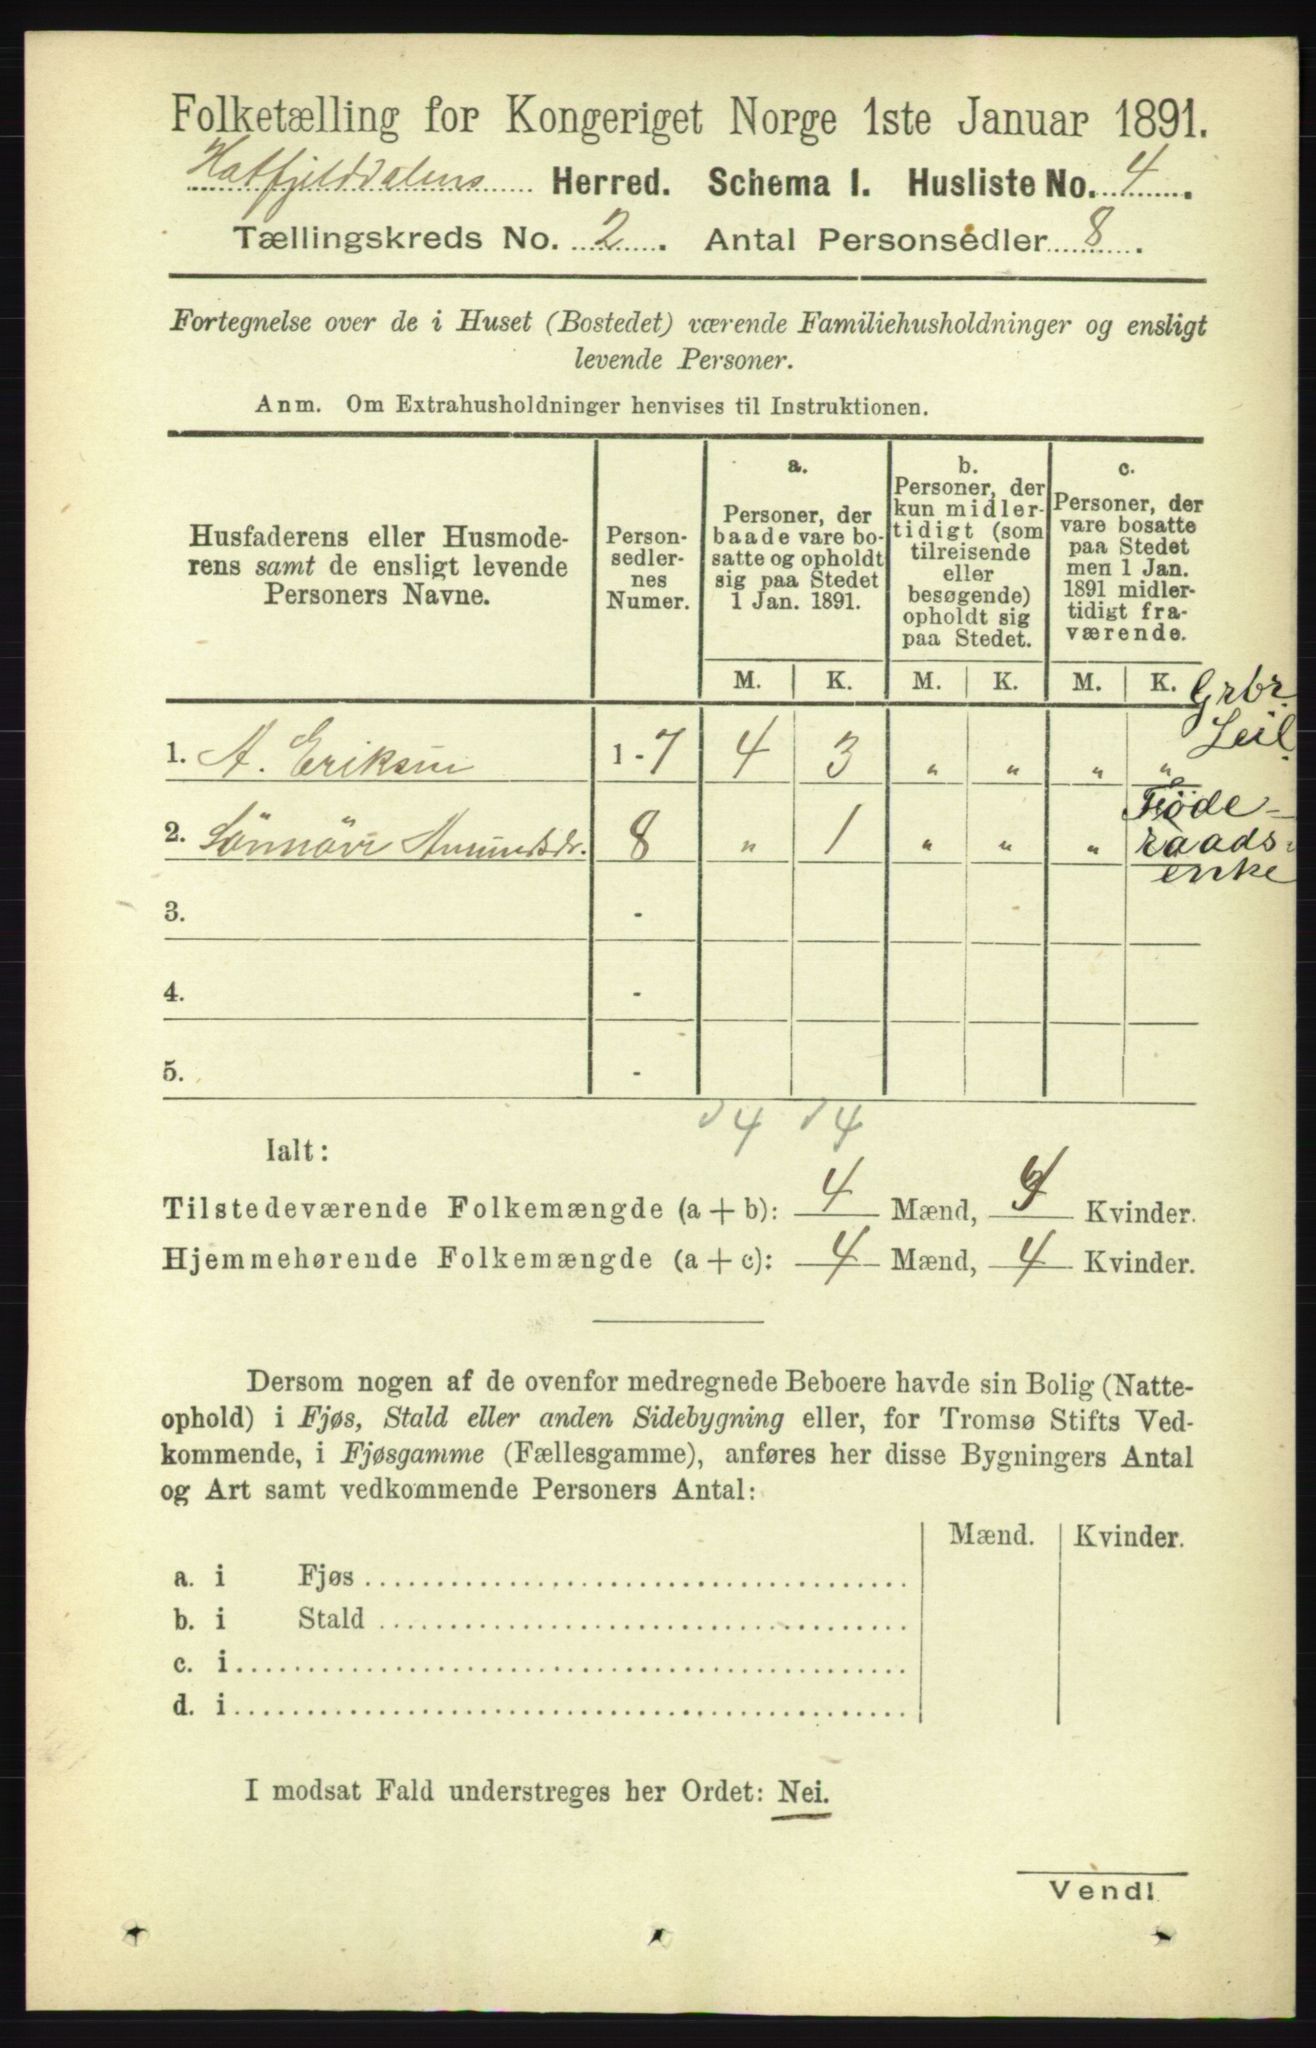 Folketælling for Kongeriget Norge 1ste Januar 1891.
Hatfjelddalens Herred. Schema I. Husliste No. 4.
Tællingskreds No. 2. Antal Personsedler 8.
Fortegnelse over de i Huset (Bostedet) værende Familiehusholdninger og ensligt
levende Personer.
Anm. Om Extrahusholdninger henvises til Instruktionen.
Husfaderens eller Husmode-
rens samt de ensligt levende
Personers Navne.
Person-
sedler-
nes
Numer.
a.
Personer, der
baade vare bo-
satte og opholdt
sig paa Stedet
1 Jan. 1891.
b.
Personer, der
kun midler-
tidigt (som
tilreisende
eller
besøgende)
opholdt sig
paa Stedet.
c.
Personer, der
vare bosatte
paa Stedet
men 1 Jan.
1891 midler-
tidigt fra-
værende.
M. K. M. K. M. K.
Grbr.
Leil.
1. A. Eriksen 1-7 4 3 " " " "
2. Sönnövi Amundsdr. 8 " 1 " " "
Föde-
raads-
enke
3. -
4. -
5. -
4 4
Ialt:
Tilstedeværende Folkemængde (a + b): 4 Mænd, Kvinder.
Hjemmehørende Folkemængde (a + c): 4 Mænd, 4 Kvinder.
Dersom nogen af de ovenfor medregnede Beboere havde sin Bolig (Natte-
ophold) i Fjøs, Stald eller anden Sidebygning eller, for Tromsø Stifts Ved-
kommende, i Fjøsgamme (Fællesgamme), anføres her disse Bygningers Antal
og Art samt vedkommende Personers Antal:
Mænd. Kvinder.
a. i Fjøs
b. i Stald
c. i
d. i
I modsat Fald understreges her Ordet: Nei.
Vend!